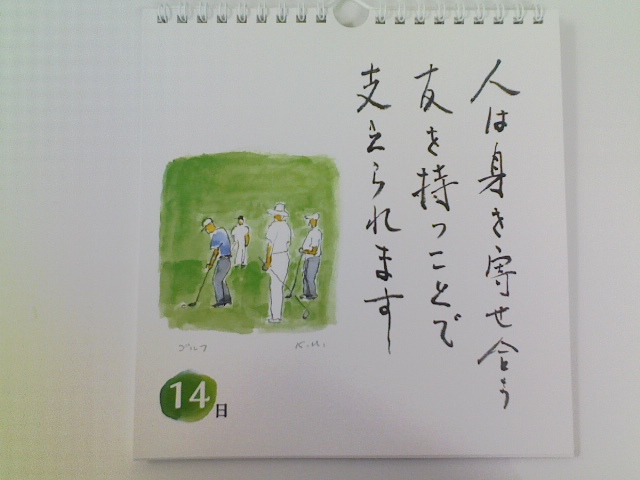 人は身を寄せ合う
友を持つことで
支えられます
ゴルフ
K.M.
14日